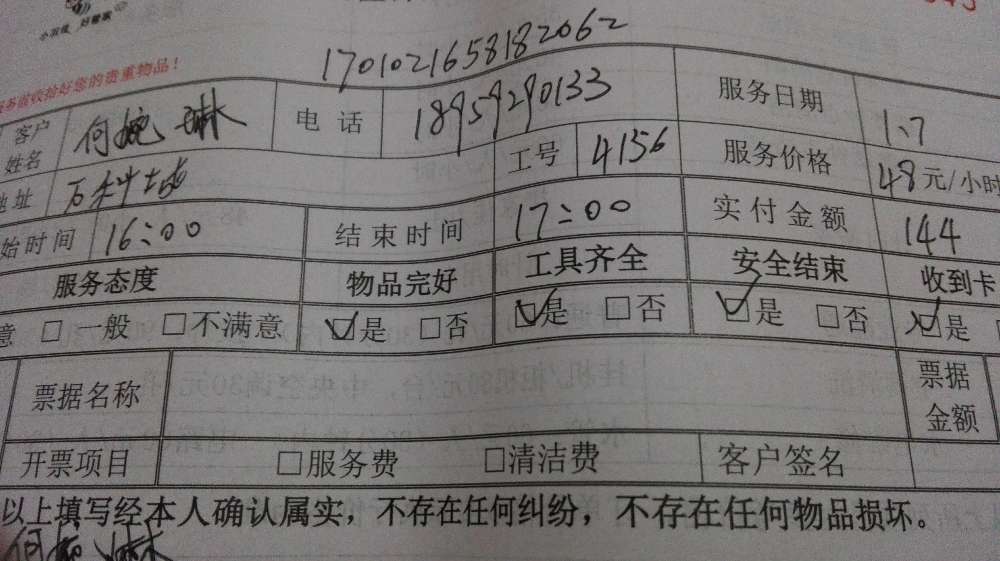 小羽佳 好管家
务前收拾好您的贵重物品！
1701021658182062
客户姓名 何婉琳 电话 18959290133 服务日期 1.7
地址 万科 工号 4156 服务价格 48元/小时
始时间 16:00 结束时间 17:00 实付金额 144
服务态度 物品完好 工具齐全 安全结束 收到卡
意 □一般 □不满意 ☑是 □否 ☑是 □否 ☑是 □否 ☑是
票据名称 票据金额
开票项目 □服务费 □清洁费 客户签名
以上填写经本人确认属实，不存在任何纠纷，不存在任何物品损坏。
何婉琳